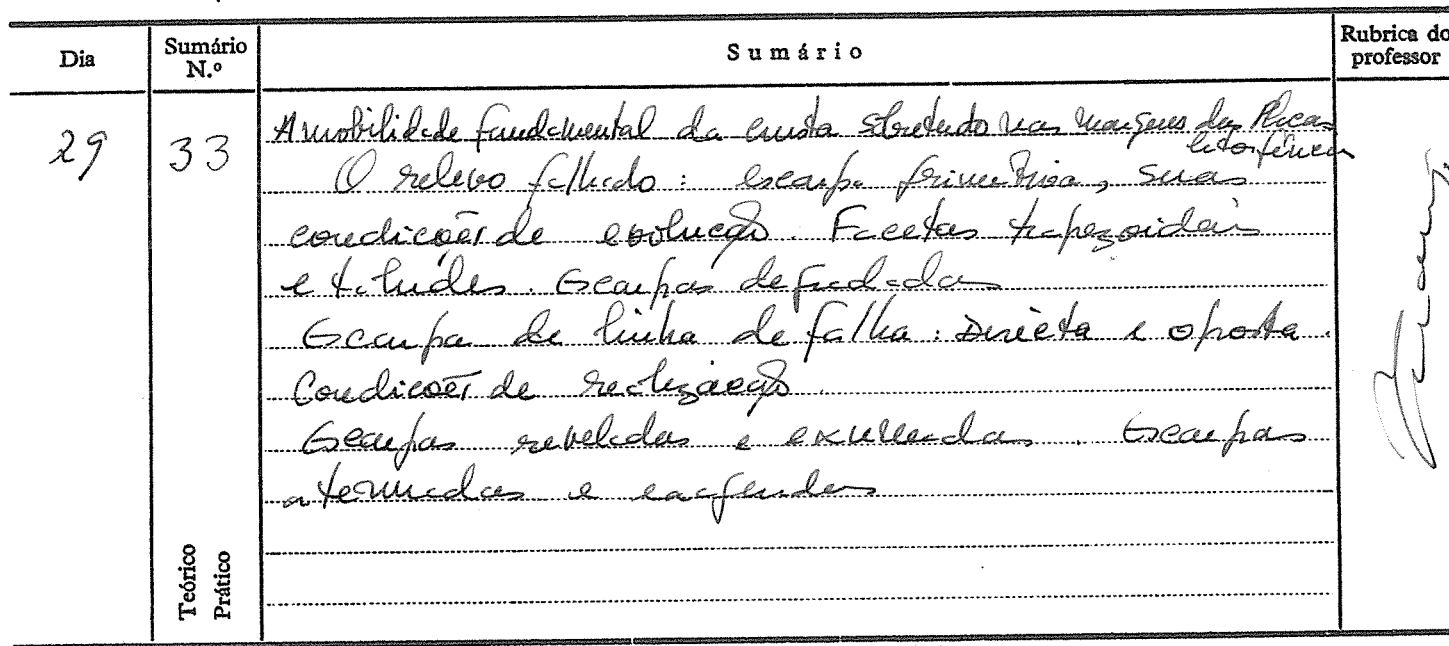 Dia
Sumário N.º
Sumário
Rubrica do professor
29
33
A mobilidade fundamental da crusta sobretudo nas margens das Placas
litosféricas
O relevo falhado : escarpa primitiva, suas
condições de evolução. Facetas trapezoidais
e taludes. Escarpas degradadas
Escarpa de linha de falha : Directa e oposta.
Condições de realização.
Escarpas reveladas e exumadas. Escarpas
e
Teórico
Prático